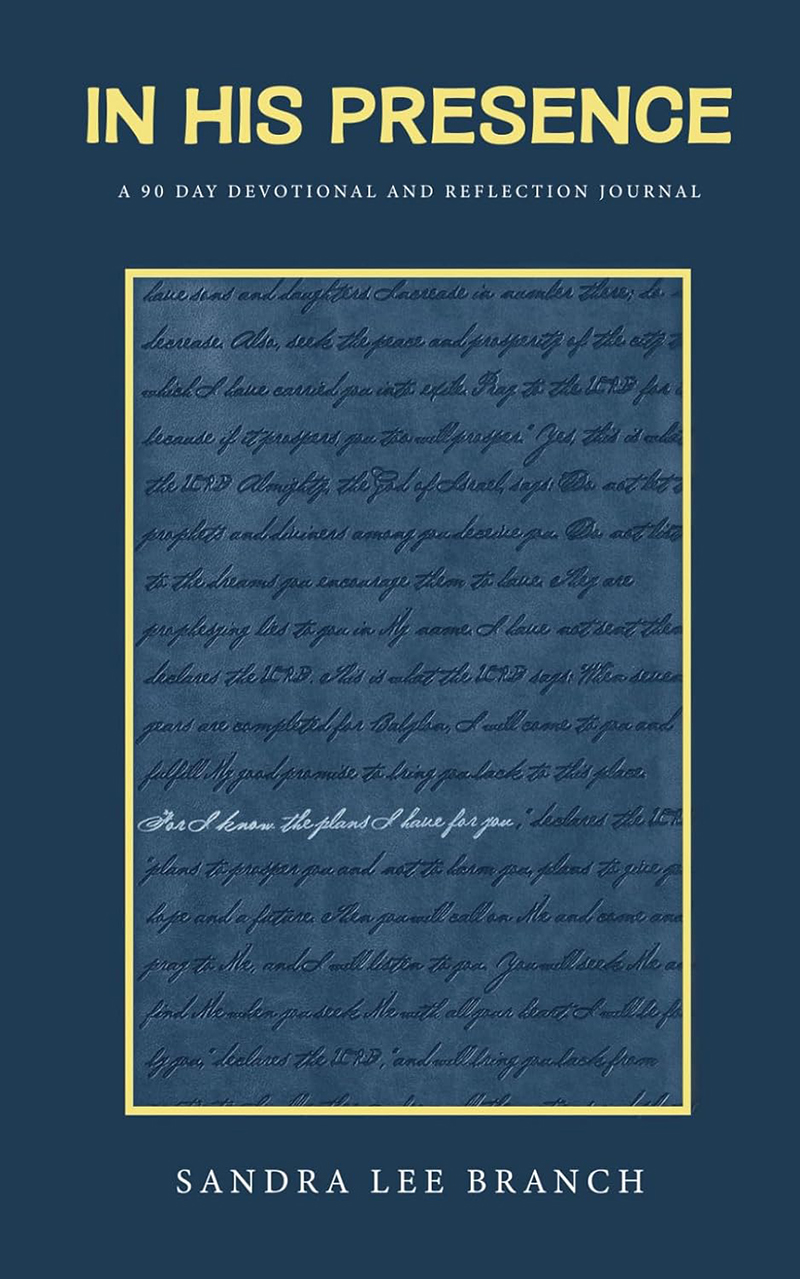 IN HIS PRESENCE
A 90 DAY DEVOTIONAL AND REFLECTION JOURNAL
have sons and daughters Increase in number there; do
decrease. Also, seek the peace and prosperity of the city
which I have carried you into exile. Pray to the LORD for
because if it prospers, you too will prosper." Yes, this is what
the LORD Almighty, the God of Israel, says: "Do not let
prophets and diviners among you deceive you. Do not
to the dreams you encourage them to have. They are
prophesying lies to you in My name. I have not sent them
declares the LORD. This is what the LORD says: When
years are completed for Babylon, I will come to you and
fulfill My good promise to bring you back to this place.
For I know the plans I have for you," declares the
"plans to prosper you and not to harm you, plans to give
hope and a future. Then you will call on Me and come and
pray to Me, and I will listen to you. You will seek Me
find Me when you seek Me with all your heart. I will be
by you," declares the LORD, "and will bring you back from
SANDRA LEE BRANCH